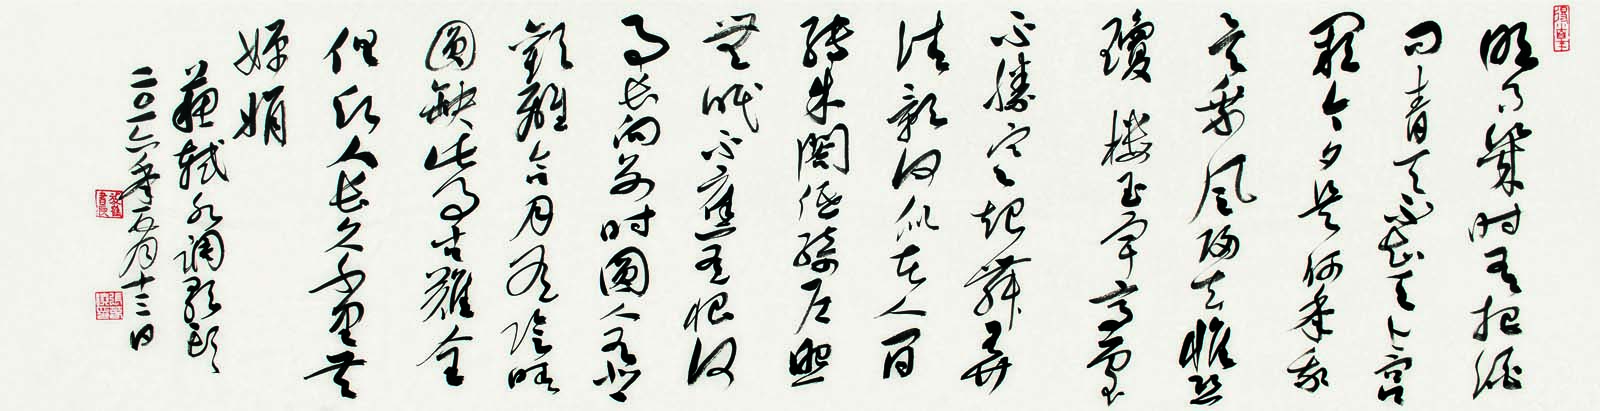 明月幾时有把酒
问青天不知天上宫
闕今夕是何年我
欲乘风歸去惟恐
瓊楼玉宇高處
不勝寒起舞弄
清影何似在人间
转朱阁低绮户照
無眠不應有恨何
事长向别时圆人有悲
歡離合月有陰晴
圆缺此事古難全
但願人长久千里共
嬋娟
蘇軾水调歌頭
二〇一六年五月十三日